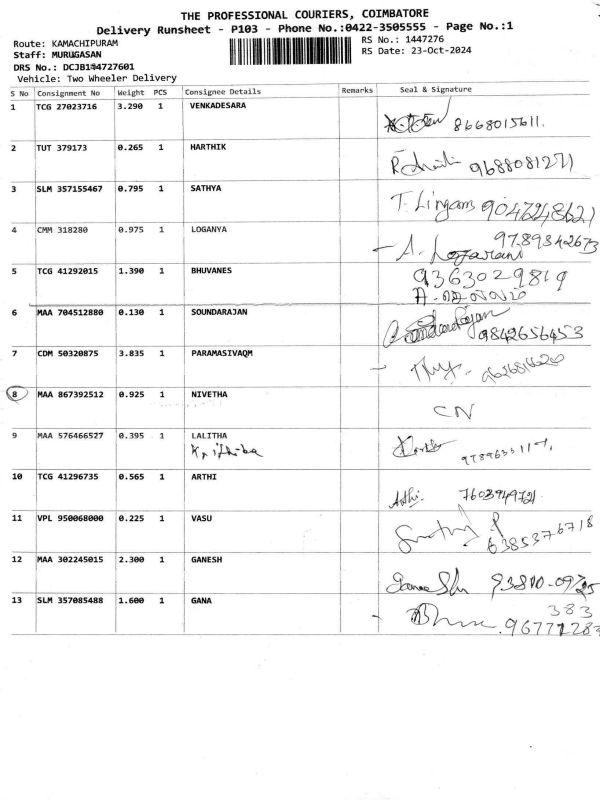 THE PROFESSIONAL COURIERS, COIMBATORE
Delivery Runsheet - P103 - Phone No.:0422-3505555 - Page No.:1
Route: KAMACHIPURAM RS No.: 1447276
Staff: MURUGASAN RS Date: 23-Oct-2024
DRS No.: DCJB144727601
Vehicle: Two Wheeler Delivery
S No Consignment No Weight PCS Consignee Details Remarks Seal & Signature
1 TCG 27023716 3.290 1 VENKADESARA
8668015611.
2 TUT 379173 0.265 1 HARTHIK
9688081271
3 SLM 357155467 0.795 1 SATHYA
T. Lingam 9047248621
4 CMM 318280 0.975 1 LOGANYA
9789342673
A.
5 TCG 41292015 1.390 1 BHUVANES
9363029819
6 MAA 704512880 0.130 1 SOUNDARAJAN
9842656453
7 CDM 50320875 3.835 1 PARAMASIVAQM
8 MAA 867392512 0.925 1 NIVETHA
CN
9 MAA 576466527 0.395 1 LALITHA
Krithika
10 TCG 41296735 0.565 1 ARTHI
Arthi. 7603949721
11 VPL 950068000 0.225 1 VASU
6385376718
12 MAA 302245015 2.300 1 GANESH
Ganesh 93810-09725
13 SLM 357085488 1.600 1 GANA
383
96771283